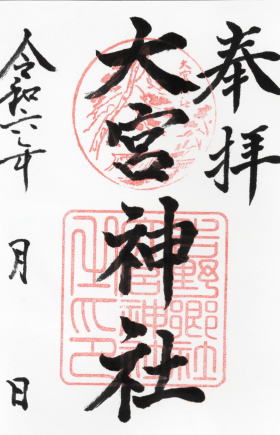 奉拝
大宮神社
令和六年
月
日